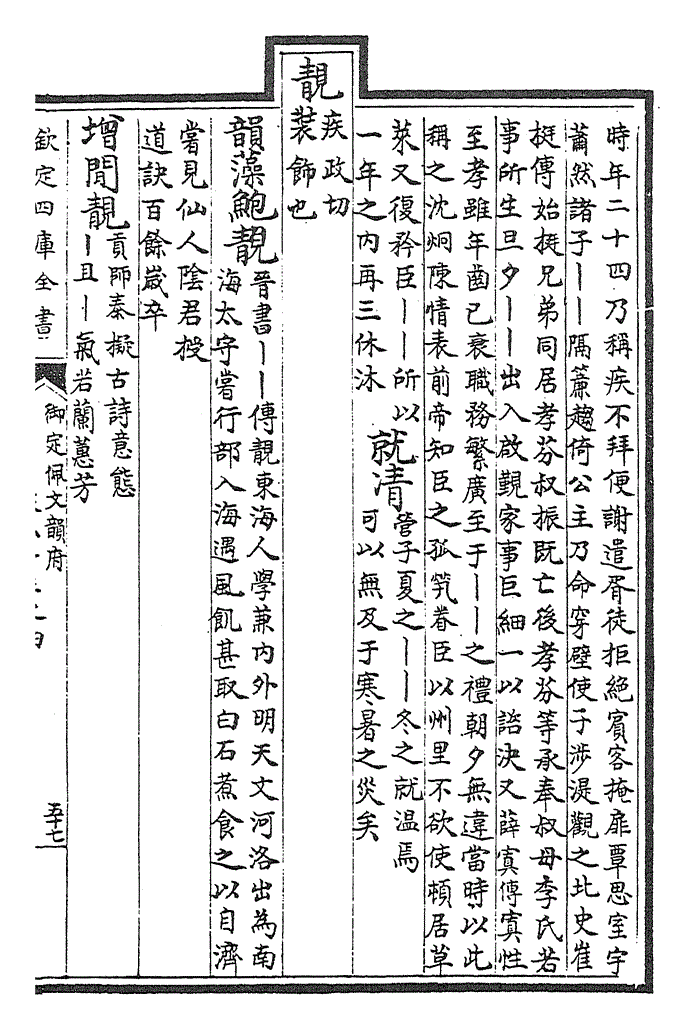 時年二十四乃稱疾不拜便謝遣胥徒拒絕賓客掩扉覃思室宇
蕭然諸子丨丨隔簾趨倚公主乃命穿壁使子涉湜觀之北史崔
挺傳始挺兄弟同居孝芬叔振既亡後孝芬等承奉叔母李氏若
事所生旦夕丨丨出入啟覲家事巨細一以諮決又薛寘傳寘性
至孝雖年齒已衰職務繁廣至于丨丨之禮朝夕無違當時以此
稱之沈炯陳情表前帝知臣之孤煢眷臣以州里不欲使頓居草
萊又復矜臣丨丨所以
一年之內再三休沐
就清
管子夏之丨丨冬之就温焉
可以無及于寒暑之災矣
靚
疾政切
裝飾也
韻藻
鮑靚
晉書丨丨傳靚東海人學兼內外明天文河洛出為南
海太守嘗行部入海遇風飢甚取白石煮食之以自濟
嘗見仙人陰君授
道訣百餘歲卒
增
閒靚
貢師泰擬古詩意態
丨且丨氣若蘭蕙芳
欽定四庫全書
御定佩文韻府
五十七